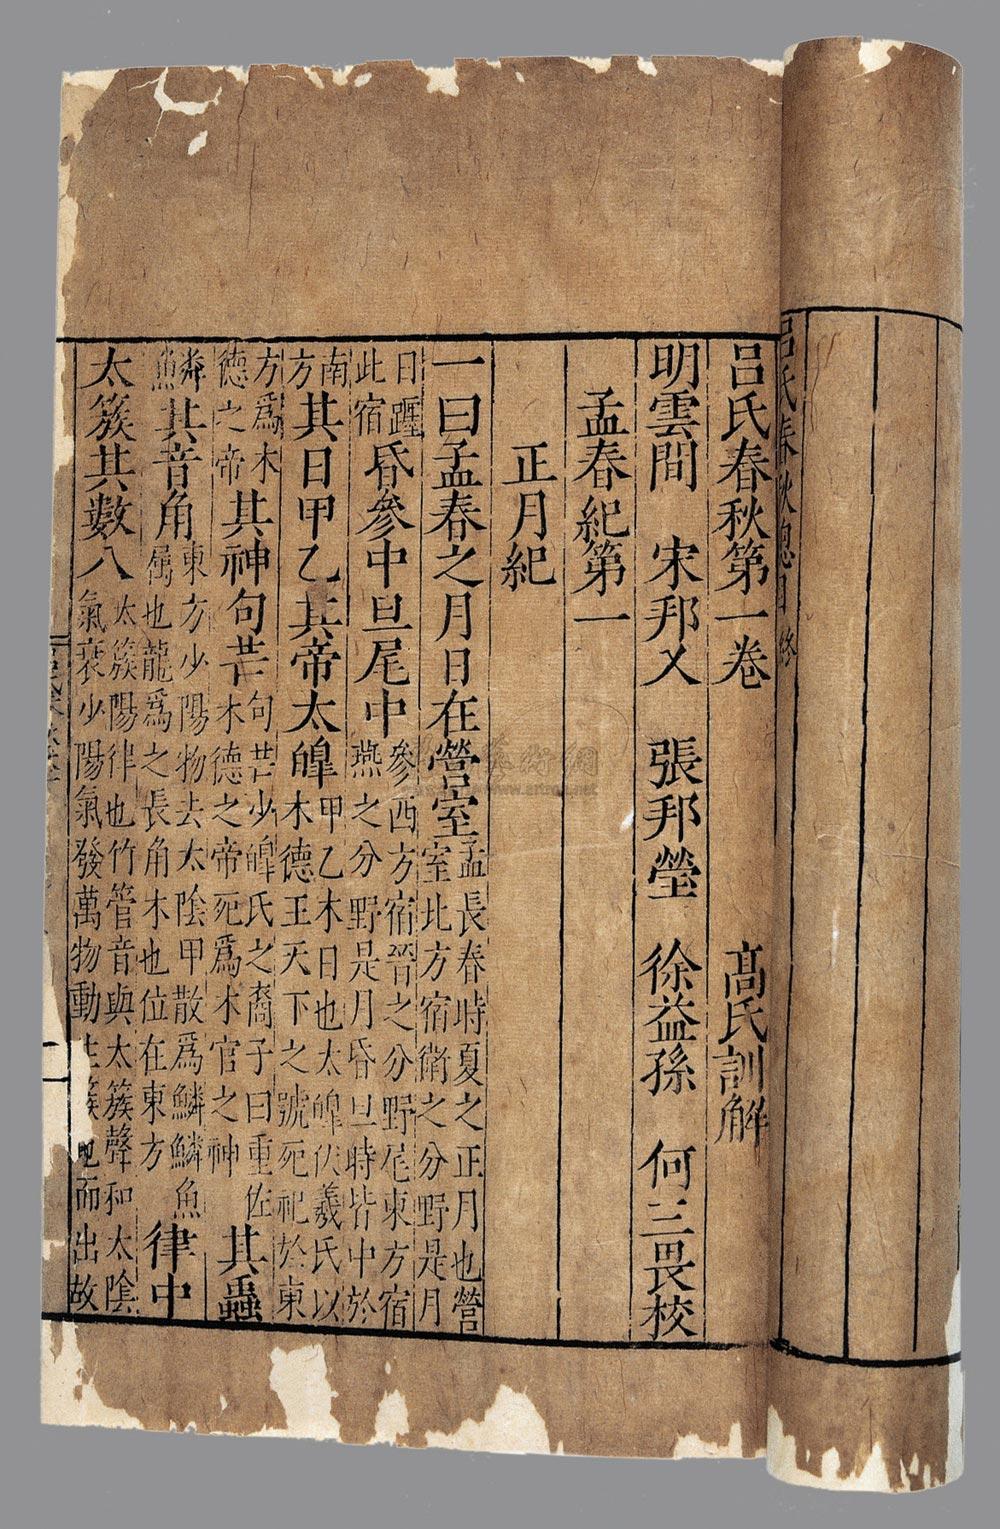 呂氏春秋總目終
呂氏春秋第一卷　高氏訓解
明雲間　宋邦乂　張邦瑩　徐益孫　何三畏校
孟春紀第一
正月紀
一曰孟春之月日在營室孟長春時夏之正月也營室北方宿衛之分野是月
日躔此宿昏參中旦尾中參西方宿晉之分野尾東方宿燕之分野是月昏旦時皆中於
南方其日甲乙其帝太皥甲乙木日也太皥伏羲氏以木德王天下之號死祀於東
方爲木德之帝其神句芒句芒少皥氏之裔子曰重佐木德之帝死爲木官之神其蟲
鱗魚其音角東方少陽物去太陰甲散爲鱗鱗魚屬也龍爲之長角木也位在東方律中
太簇其數八太簇陽律也竹管音與太簇聲和太陰氣衰少陽氣發萬物動生簇地而出故
www.artron.net